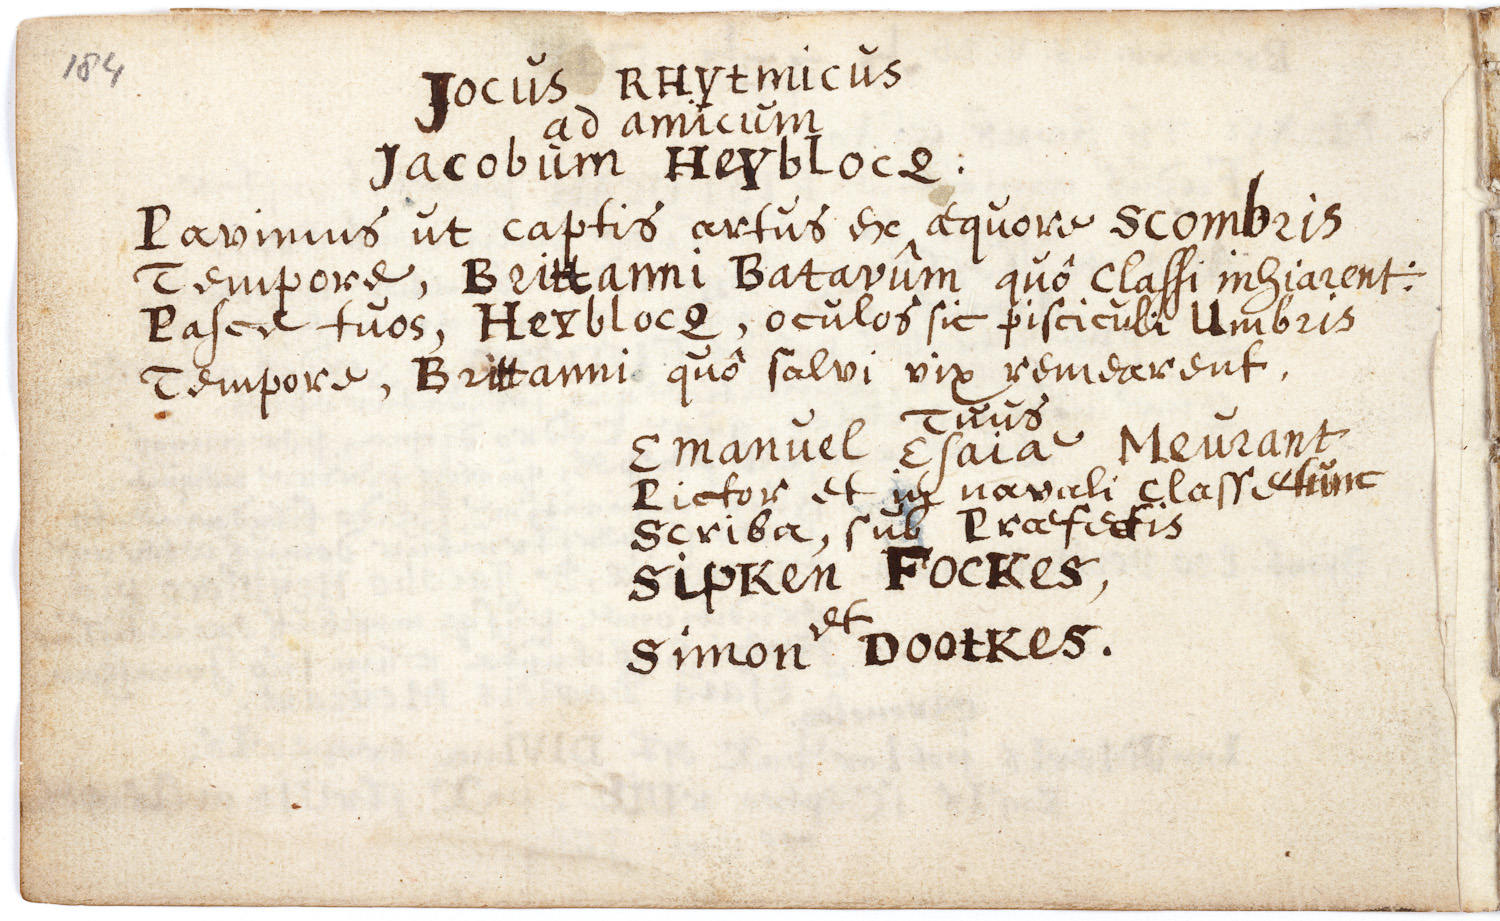 184
Jocus RHytmicus
ad amicum
Jacobum Heyblocq.
Pavimus ut captis artus ex æquore scombris
Tempore, Brittanni Batavûm quô Classi inhiarent:
Pasce tuos, Heyblocq, oculos sic pisciculi Umbris
Tempore, Brittanni quô salvi vix remearent.
Tuus
Emanuel Esaiae Meurant
Pictor et in navali Classe tunc
Scriba, sub Præfectis
Sipken Fockes,
et
Simon Dootkes.